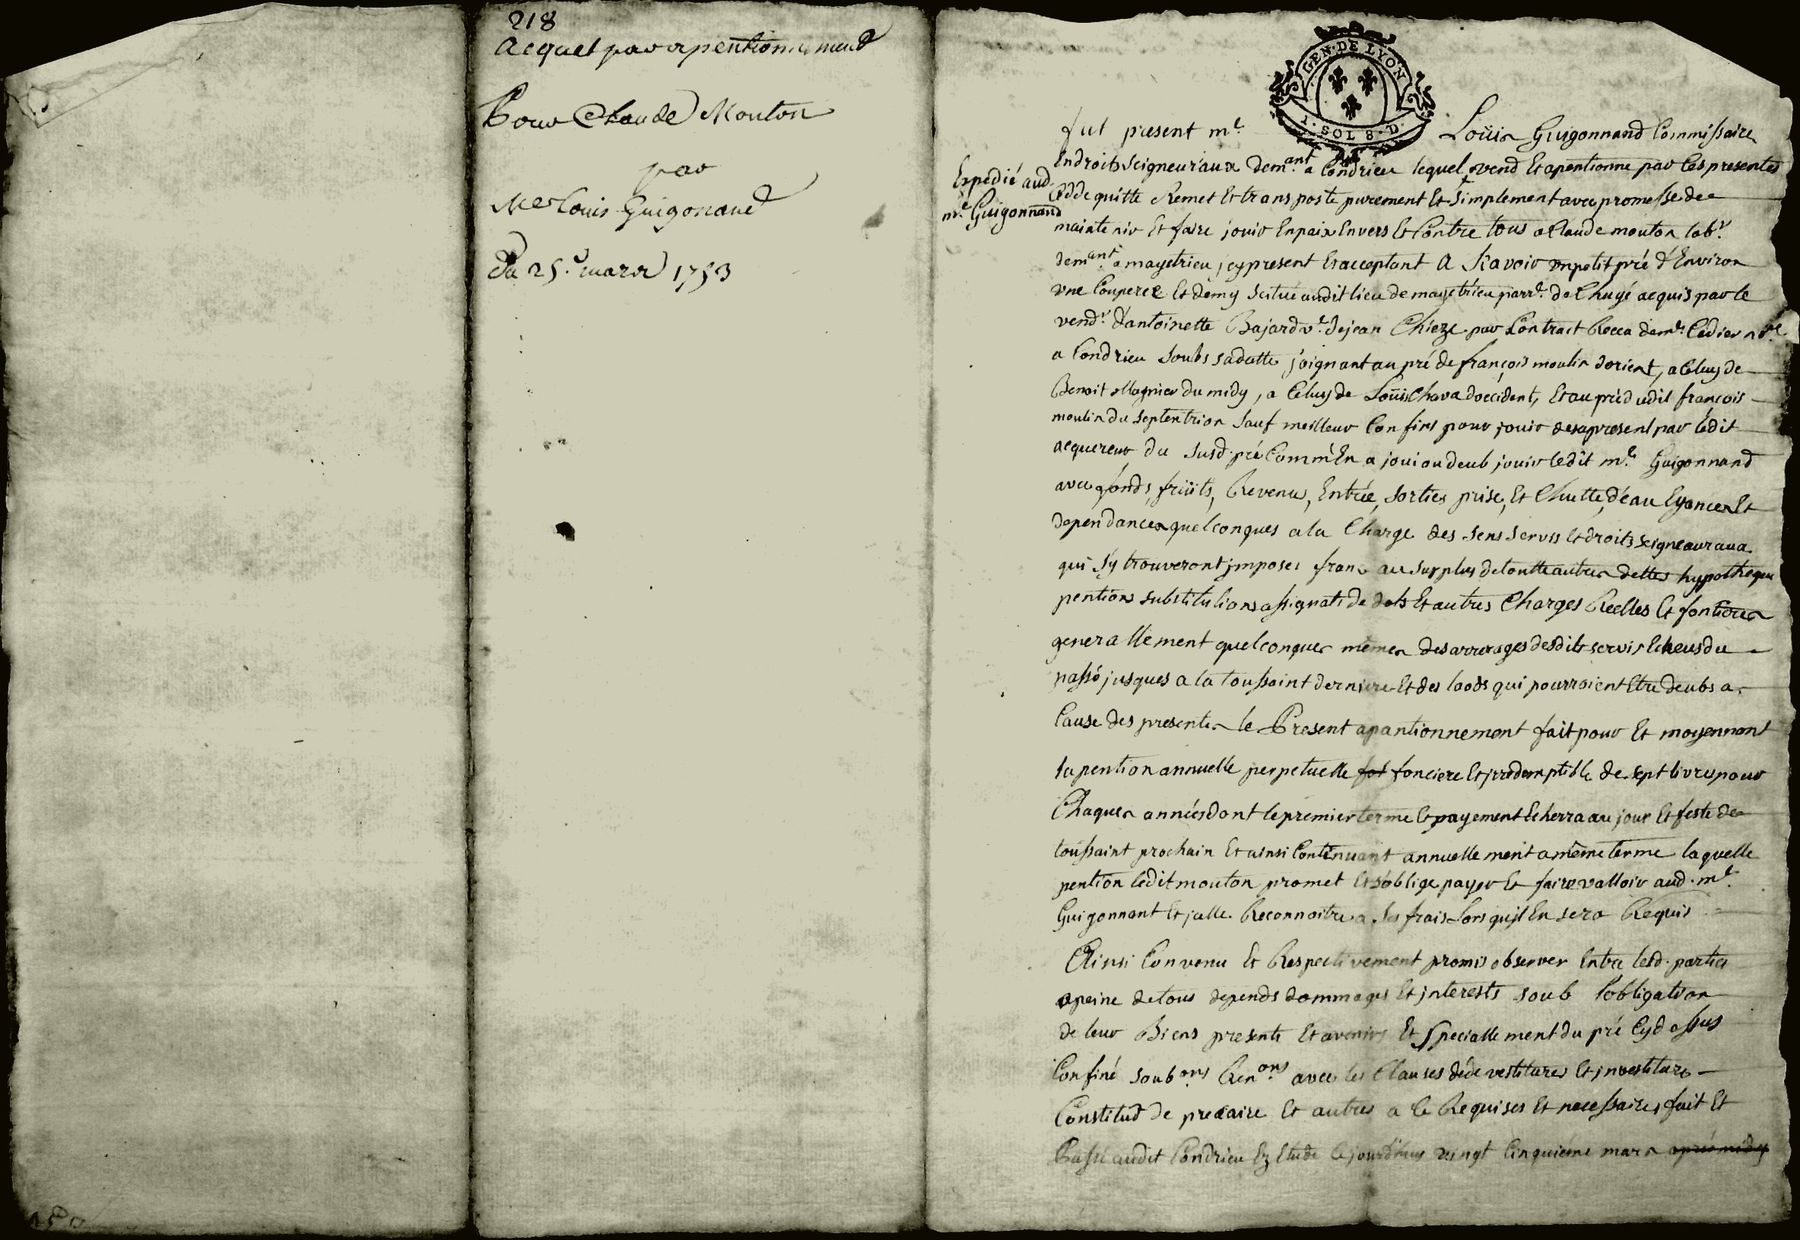 218
acquet par apentionnement
Pour Claude Mouton
par
Me Louis Guigonand
Du 25e mars 1753
GEN·DE LYON
1·SOL 8·D
Expedié aud
mr Guigonnand
fut present mr Loüis Guigonnand Commissaire
En droits seigneuraux demant a Condrieu lequel vend Et apentionne par Ces presentes
Cedde quitte Remet Et transposte purement Et simplement avec promesse de
maintenir Et faire jouir En paix Envers Et Contre tous a Claude mouton labr
demant a mayetrieu jcy present Et acceptant A scavoir un petit pré d'Environ
une Couperée Et demy scitué audit lieu de mayetrieu parre de Chuyé acquis par le
vendr d'antoinette Bajard ve de jean Chieze par Contract Receu de mr Cedier nore
a Condrieu soubs sa datte joignant au pré de françois moulin d'orient, a Celuy de
Benoit Magnier du midy, a Celuy de Loüis Chava d'occident, Et au pré dudit françois
moulin du septentrion sauf meilleur Confins pour jouir des apresent par ledit
acquereur du susd pré Comm'En a joui ou deub jouir ledit mr Guigonnand
avec fonds, früits, Revenu, Entrée, sorties prise, Et Chutte d'eau Eyances Et
dependances quelconques a la Charge des sens servis Et droits seigneuraux
qui s'y trouveront jmposes franc au surplus de toutte autres dettes hypotheques
pentions substitutions assignats de dots Et autres Charges Reelles Et fontieres
generallement quelconques mêmes des arrerages desdits servis Echeus du
passé jusques a la toussaint derniere Et des laods qui pourroient Etre deubs a
Cause des presentes le Present apantionnement fait pour Et moyennant
la pention annuelle perpetuelle fonciere Et jrredemptible de sept livres pour
Chaques années dont le premier terme Et payement Echerra au jour Et feste de
toussaint prochain Et ainsi Continuant annuellement a même terme laquelle
pention ledit mouton promet Et s'oblige payer Et faire valloir aud. mr
Guigonnant Et jcelle Reconnoitre a ses frais Lors qu'jl En sera Requis
Ainsi Convenu Et Respectivement promis observer Entre lesd. parties
a peine de tous depends dommages Et jnterests soub l'obligation
de leur Biens presents Et avenirs Et speciallement du pré Cy dessus
Confiné soub ons Ren ons avec les Clauses de devestitures Et jnvestiture
Constitud de precaire Et autres a Ce Requises Et necessaires, fait Et
Passé audit Condrieu Ez Etude Ce jourdhuy vingt Cinquiéme mars aprés midy